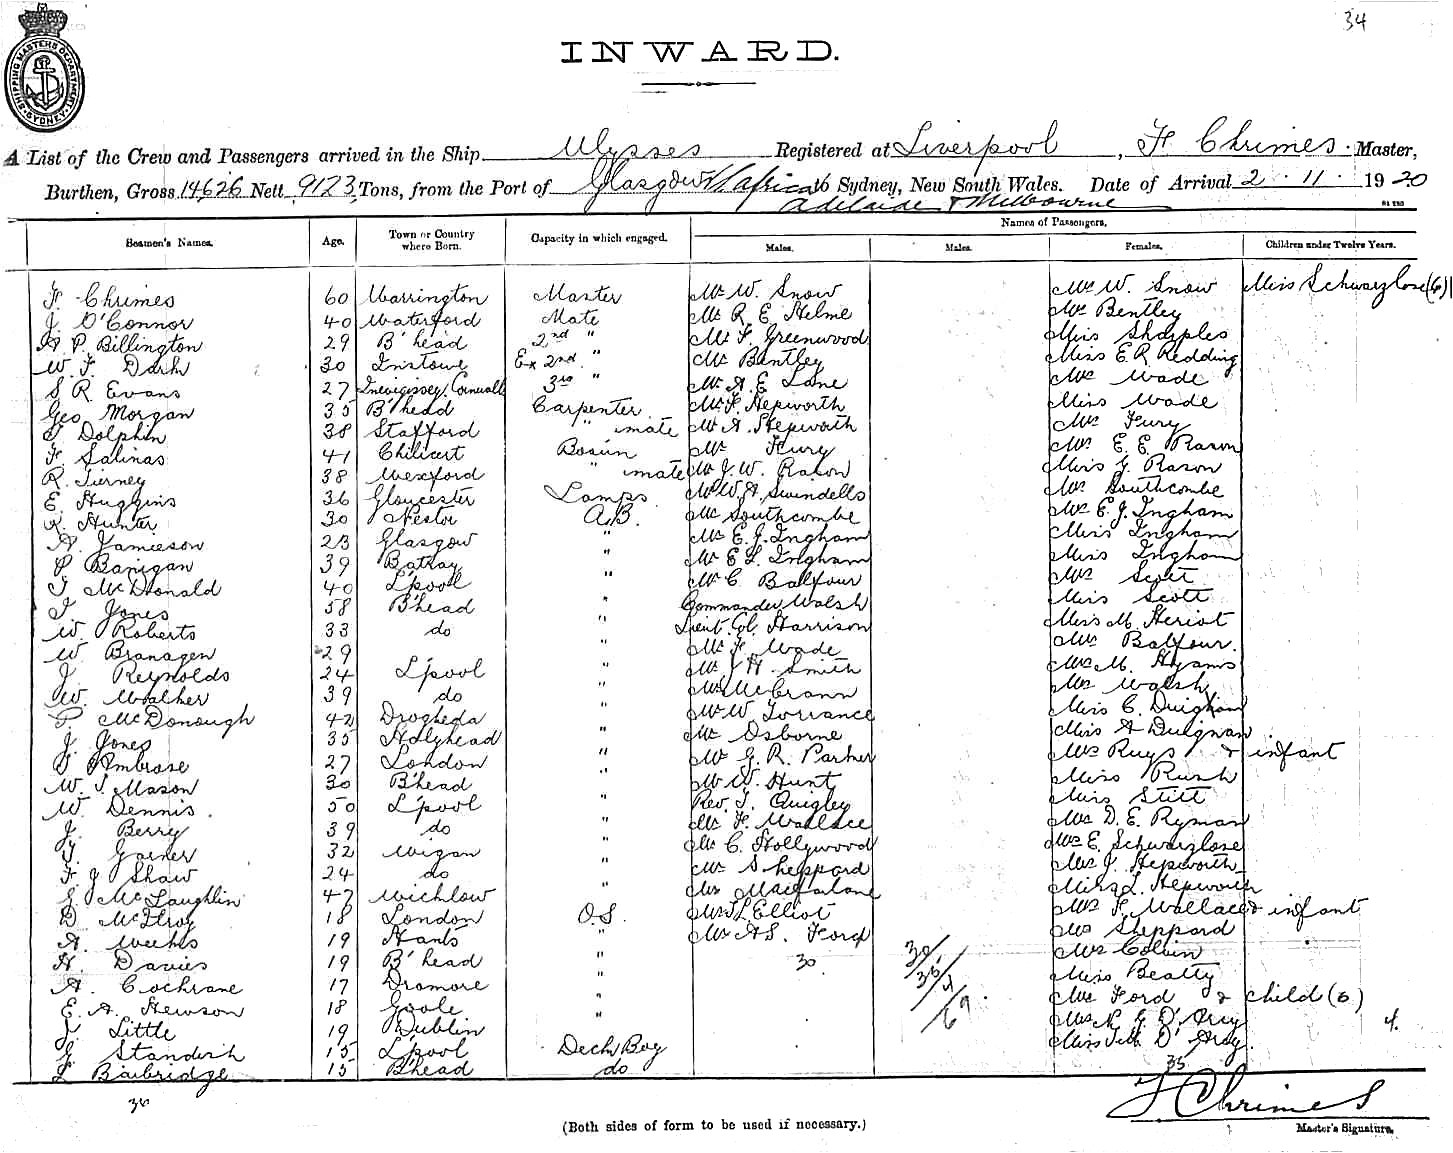 34
SHIPPING MASTERS DEPARTMENT
SYDNEY
INWARD.
A List of the Crew and Passengers arrived in the Ship Ulysses Registered at Liverpool, F Chrimes Master,
Burthen, Gross 14626 Nett 9123 Tons, from the Port of Glasgow S/Africa to Sydney, New South Wales. Date of Arrival 2 . 11 . 1920
Adelaide & Melbourne
Names of Passengers.
Seamen's Names. Age. Town or Country where Born. Capacity in which engaged. Males. Males. Females. Children under Twelve Years.
F. Chrimes 60 Warrington Master Mr W. Snow Mrs W. Snow Miss Schwarzlose (6) 1
J. O'Connor 40 Waterford Mate Mr R E Helme Mrs Bentley
A P. Billington 29 B'head 2nd " Mr F. Greenwood Miss Sharples
W. F. Dark 30 Instowe Ex 2nd " Mr Bentley Miss E R Redding
S R Evans 27 Cornwall 3rd " Mr A. E Lane Mrs Wade
Geo Morgan 35 B'head Carpenter Mr F. Hepworth Miss Wade
T Dolphin 38 Stafford " mate Mr A. Hepworth Mrs Fury
F. Salinas 41 Bosun Mr Fury Mrs E. E. Rason
R. Tierney 38 Wexford " mate Mr J. W. Rason Miss Y. Rason
E. Huggins 36 Gloucester Lamps Mr W. A. Swindells Mrs Southcombe
R. Hunter 30 Nestor A.B. Mr Southcombe Mrs E. J. Ingham
A. Jamieson 23 Glasgow " Mr E. J. Ingham Miss Ingham
P. Banigan 39 " Mr E L. Ingham Miss Ingham
T McDonald 40 L'pool " Mr C. Balfour Mrs Scott
T. Jones 58 B'head " Commander Walsh Miss Scott
W. Roberts 33 do " Lieut. Col. Harrison Miss M. Heriot
W Branagen 29 " Mr F. Wade Mrs Balfour.
J. Reynolds 24 L'pool " Mr J H. Smith Mrs M. Hyams
W. Walker 39 do " Mr McCrann Mrs Walsh
P. McDonough 42 Drogheda " Mr W Torrance Miss C. Duignan
J. Jones 35 Holyhead " Mr Osborne Miss A Duignan
Ambrose 27 London " Mr G. R. Parker Mrs Ruys & infant
W. J Mason 30 B'head " Mr W. Hunt Miss Rush
W. Dennis. 50 L'pool " Rev. T. Quigley Miss Stitt
J. Berry 39 do " Mr F. Wallace Mrs D. E. Ryman
T. Garner 32 Wigan " Mr C. Hollywood Mrs E. Schwarzlose
F J Shaw 24 do " Mr Sheppard Mrs J. Hepworth
McLaughlin 47 Wicklow " Macfarlane Miss L. Hepworth
D. McIlroy 18 London O.S. Elliot Mrs F. Wallace & infant
A. Weeks 19 Hants " Mr A S. Ford Mrs Sheppard
H. Davies 19 B'head " 30 Mrs Colvin
A. Cochrane 17 Dromore " Miss Beatty
E. A. Hewson 18 Goole " Mrs Ford & child (6)
J. Little 19 Dublin Mrs D'Arcy 4.
G. Standish 15 L'pool Deck Boy Miss D'Arcy.
L Bainbridge 15 B'head do 35
30
35
4
69.
36
F Chrimes
(Both sides of form to be used if necessary.) Master's Signature.